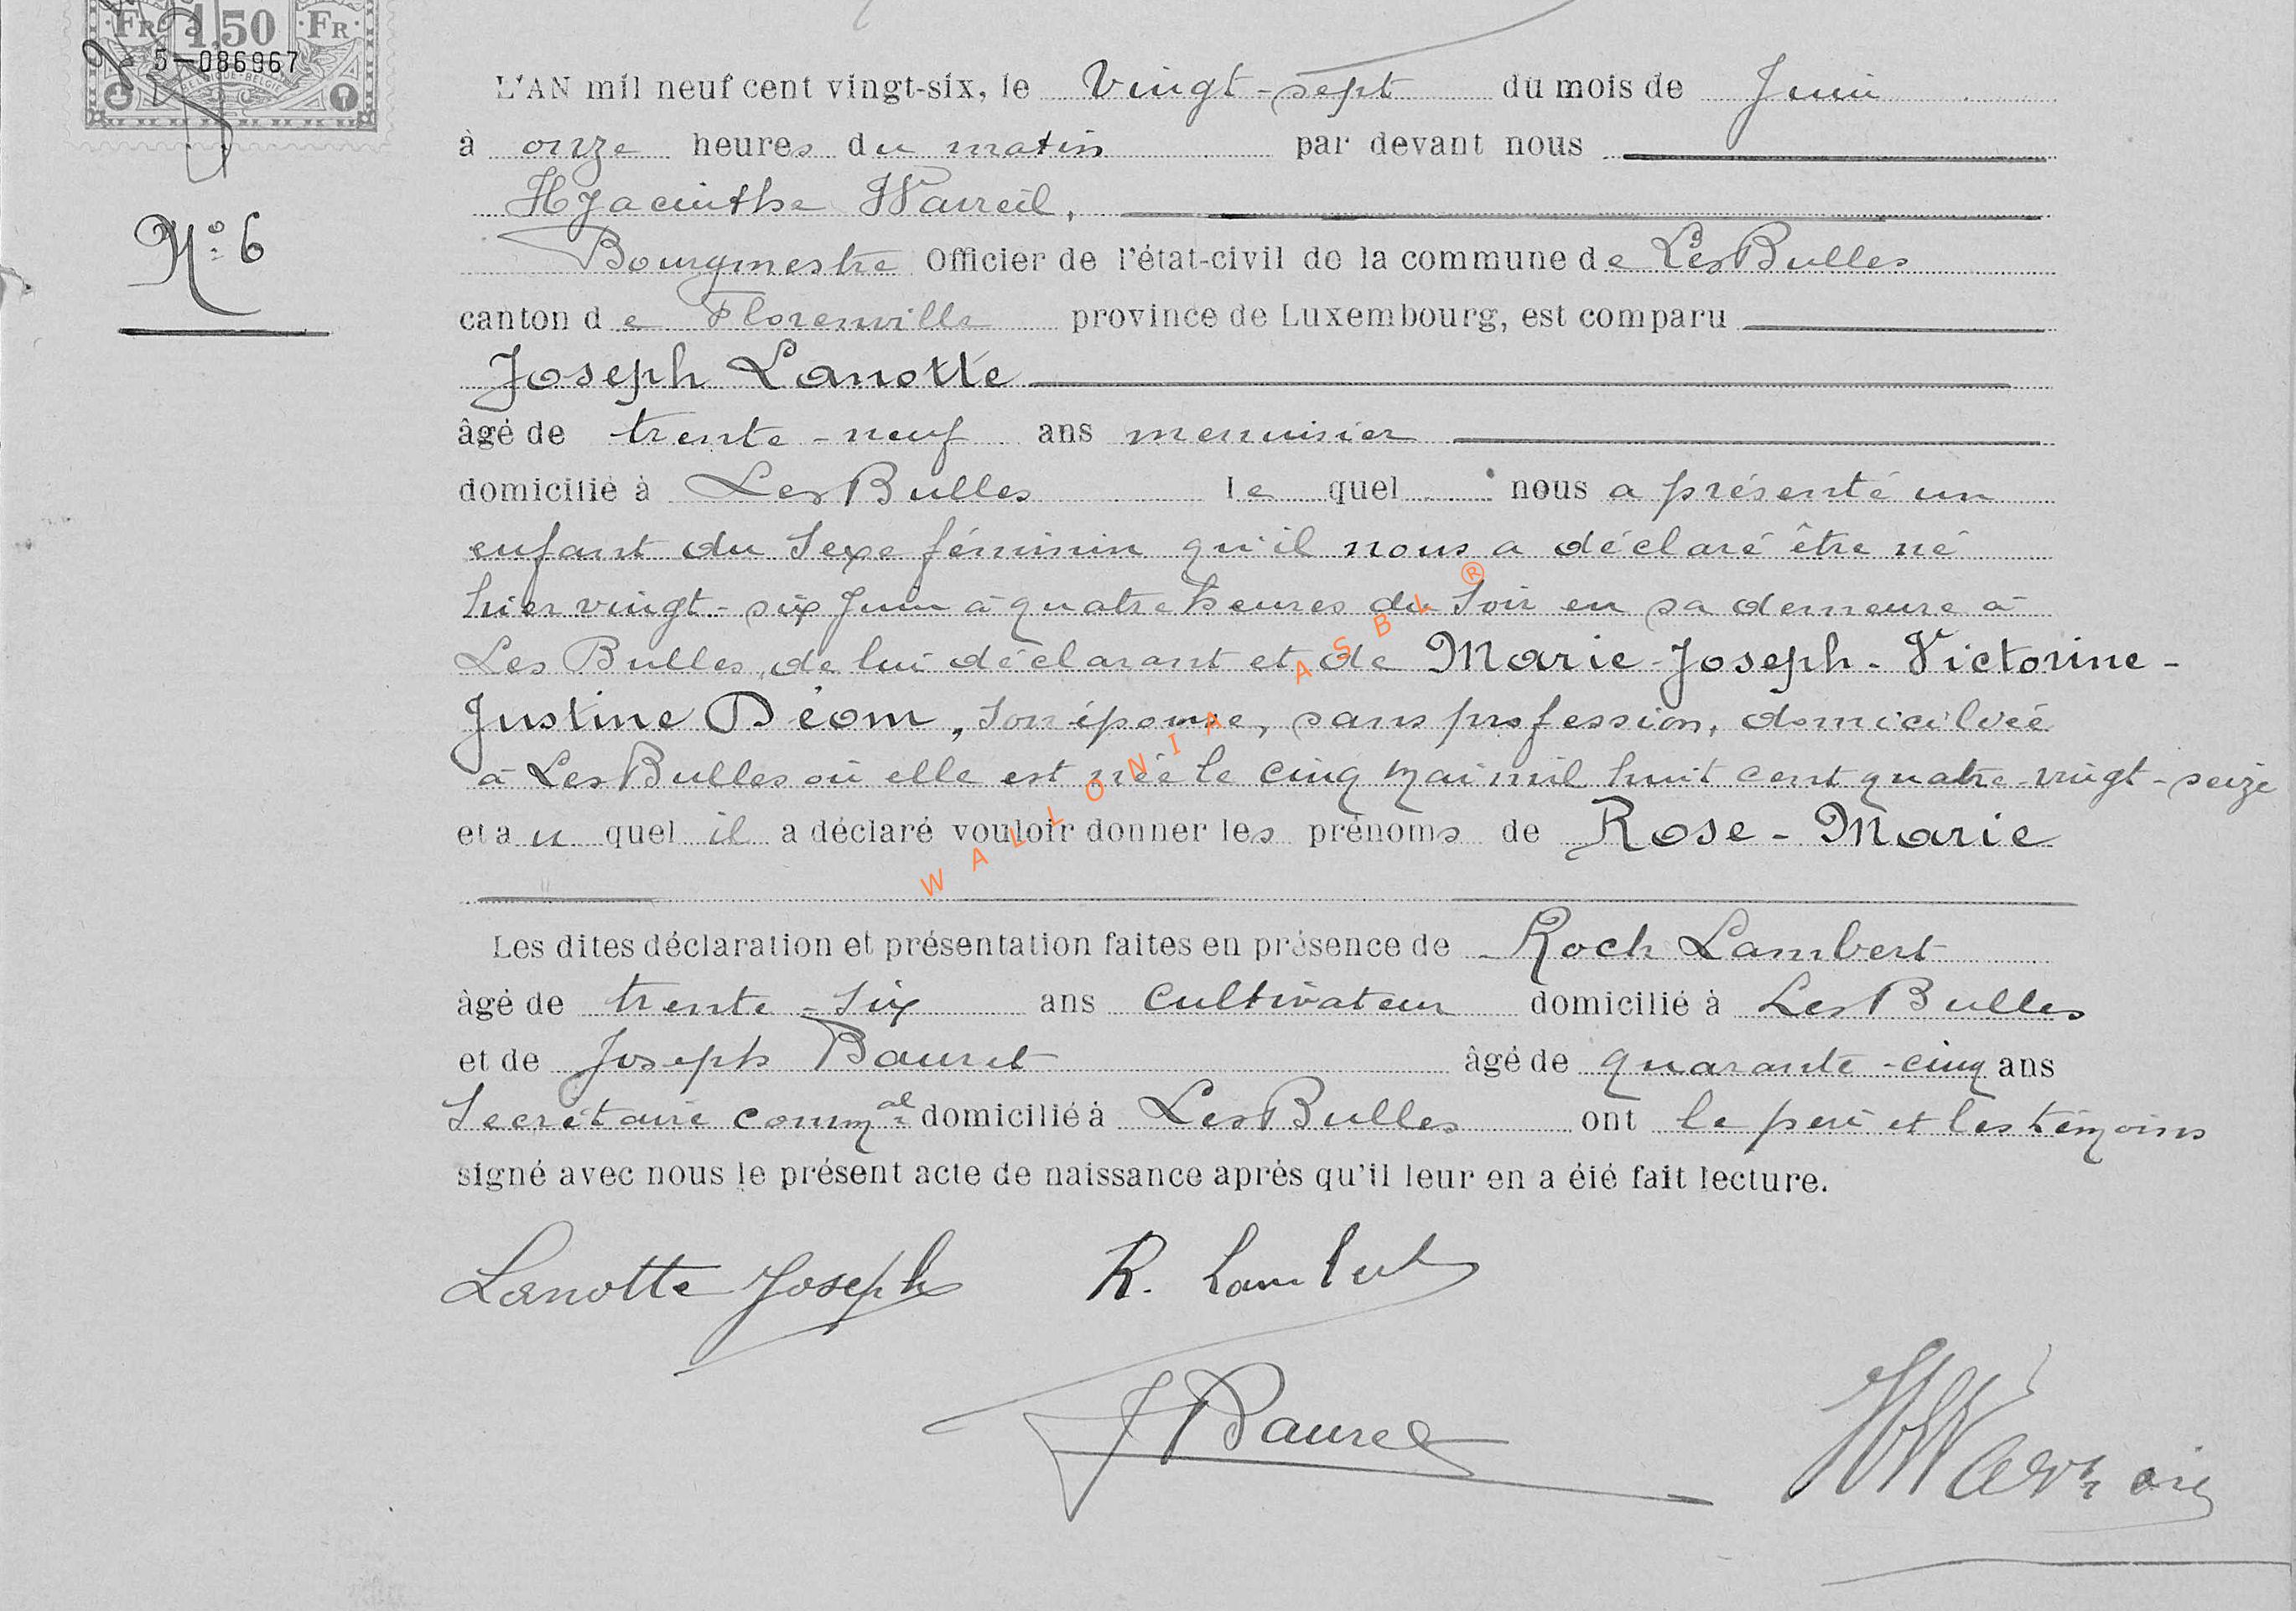 FR 1,50 FR
5-086967
BELGIQUE-BELGIE
L'AN mil neuf cent vingt-six, le vingt-sept du mois de Juin
à onze heures du matin par devant nous
Hyacinthe
N° 6
Bourgmestre Officier de l'état-civil de la commune de Les Bulles
canton de Florenville province de Luxembourg, est comparu
Joseph Lanotte
âgé de trente-neuf ans menuisier
domicilié à Les Bulles lequel nous a présenté un
enfant du Sexe féminin qu'il nous a déclaré être né
hier vingt-six Juin à quatre heures du Soir en sa demeure à
Les Bulles, de lui déclarant et de Marie-Joseph-Victorine-
Justine Déom, son épouse, sans profession, domiciliée
à Les Bulles où elle est née le cinq mai mil huit cent quatre-vingt-seize
et auquel il a déclaré vouloir donner les prénoms de Rose-Marie
WALLONIA ASBL ®
Les dites déclaration et présentation faites en présence de Roch Lambert
âgé de trente-six ans cultivateur domicilié à Les Bulles
et de Joseph Bauret âgé de quarante-cinq ans
Secrétaire comm.al domicilié à Les Bulles ont le père et les témoins
signé avec nous le présent acte de naissance après qu'il leur en a été fait lecture.
Lanotte Joseph R. Lambert
J Bauret